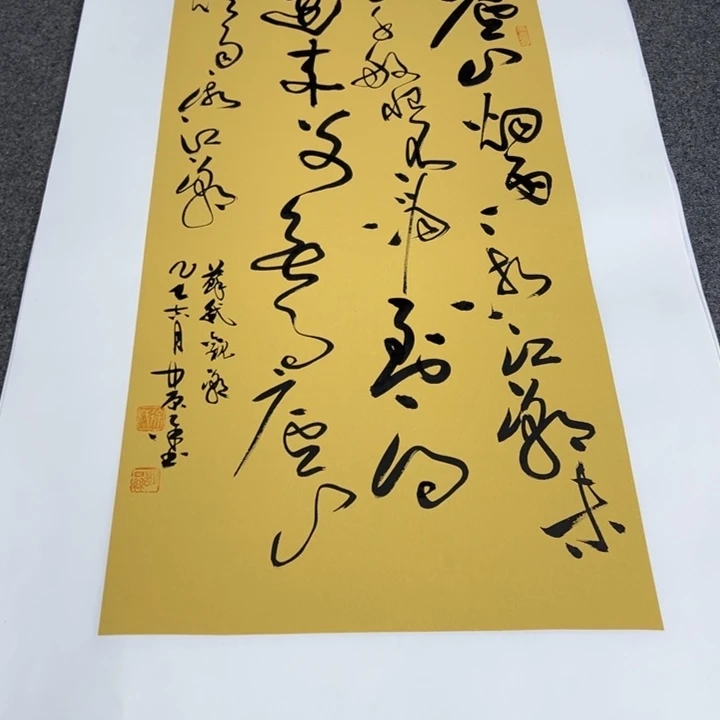 廬山烟雨浙江潮未
千般恨不消到得
還来别無事廬山
烟雨浙江潮
蘇軾觀潮
乙巳六月